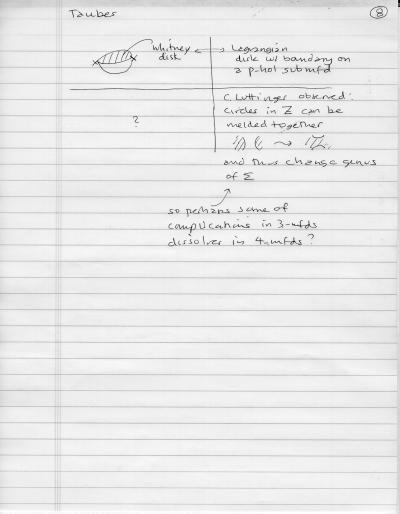 Tauber
8
Whitney disk
Lagrangian
disk w/ boundary on
a p-hol submfd
?
C. Luttinger observed:
circles in Z can be
melded together
and thus change genus
of Σ
so perhaps some of
complications in 3-mfds
dissolves in 4-mfds?